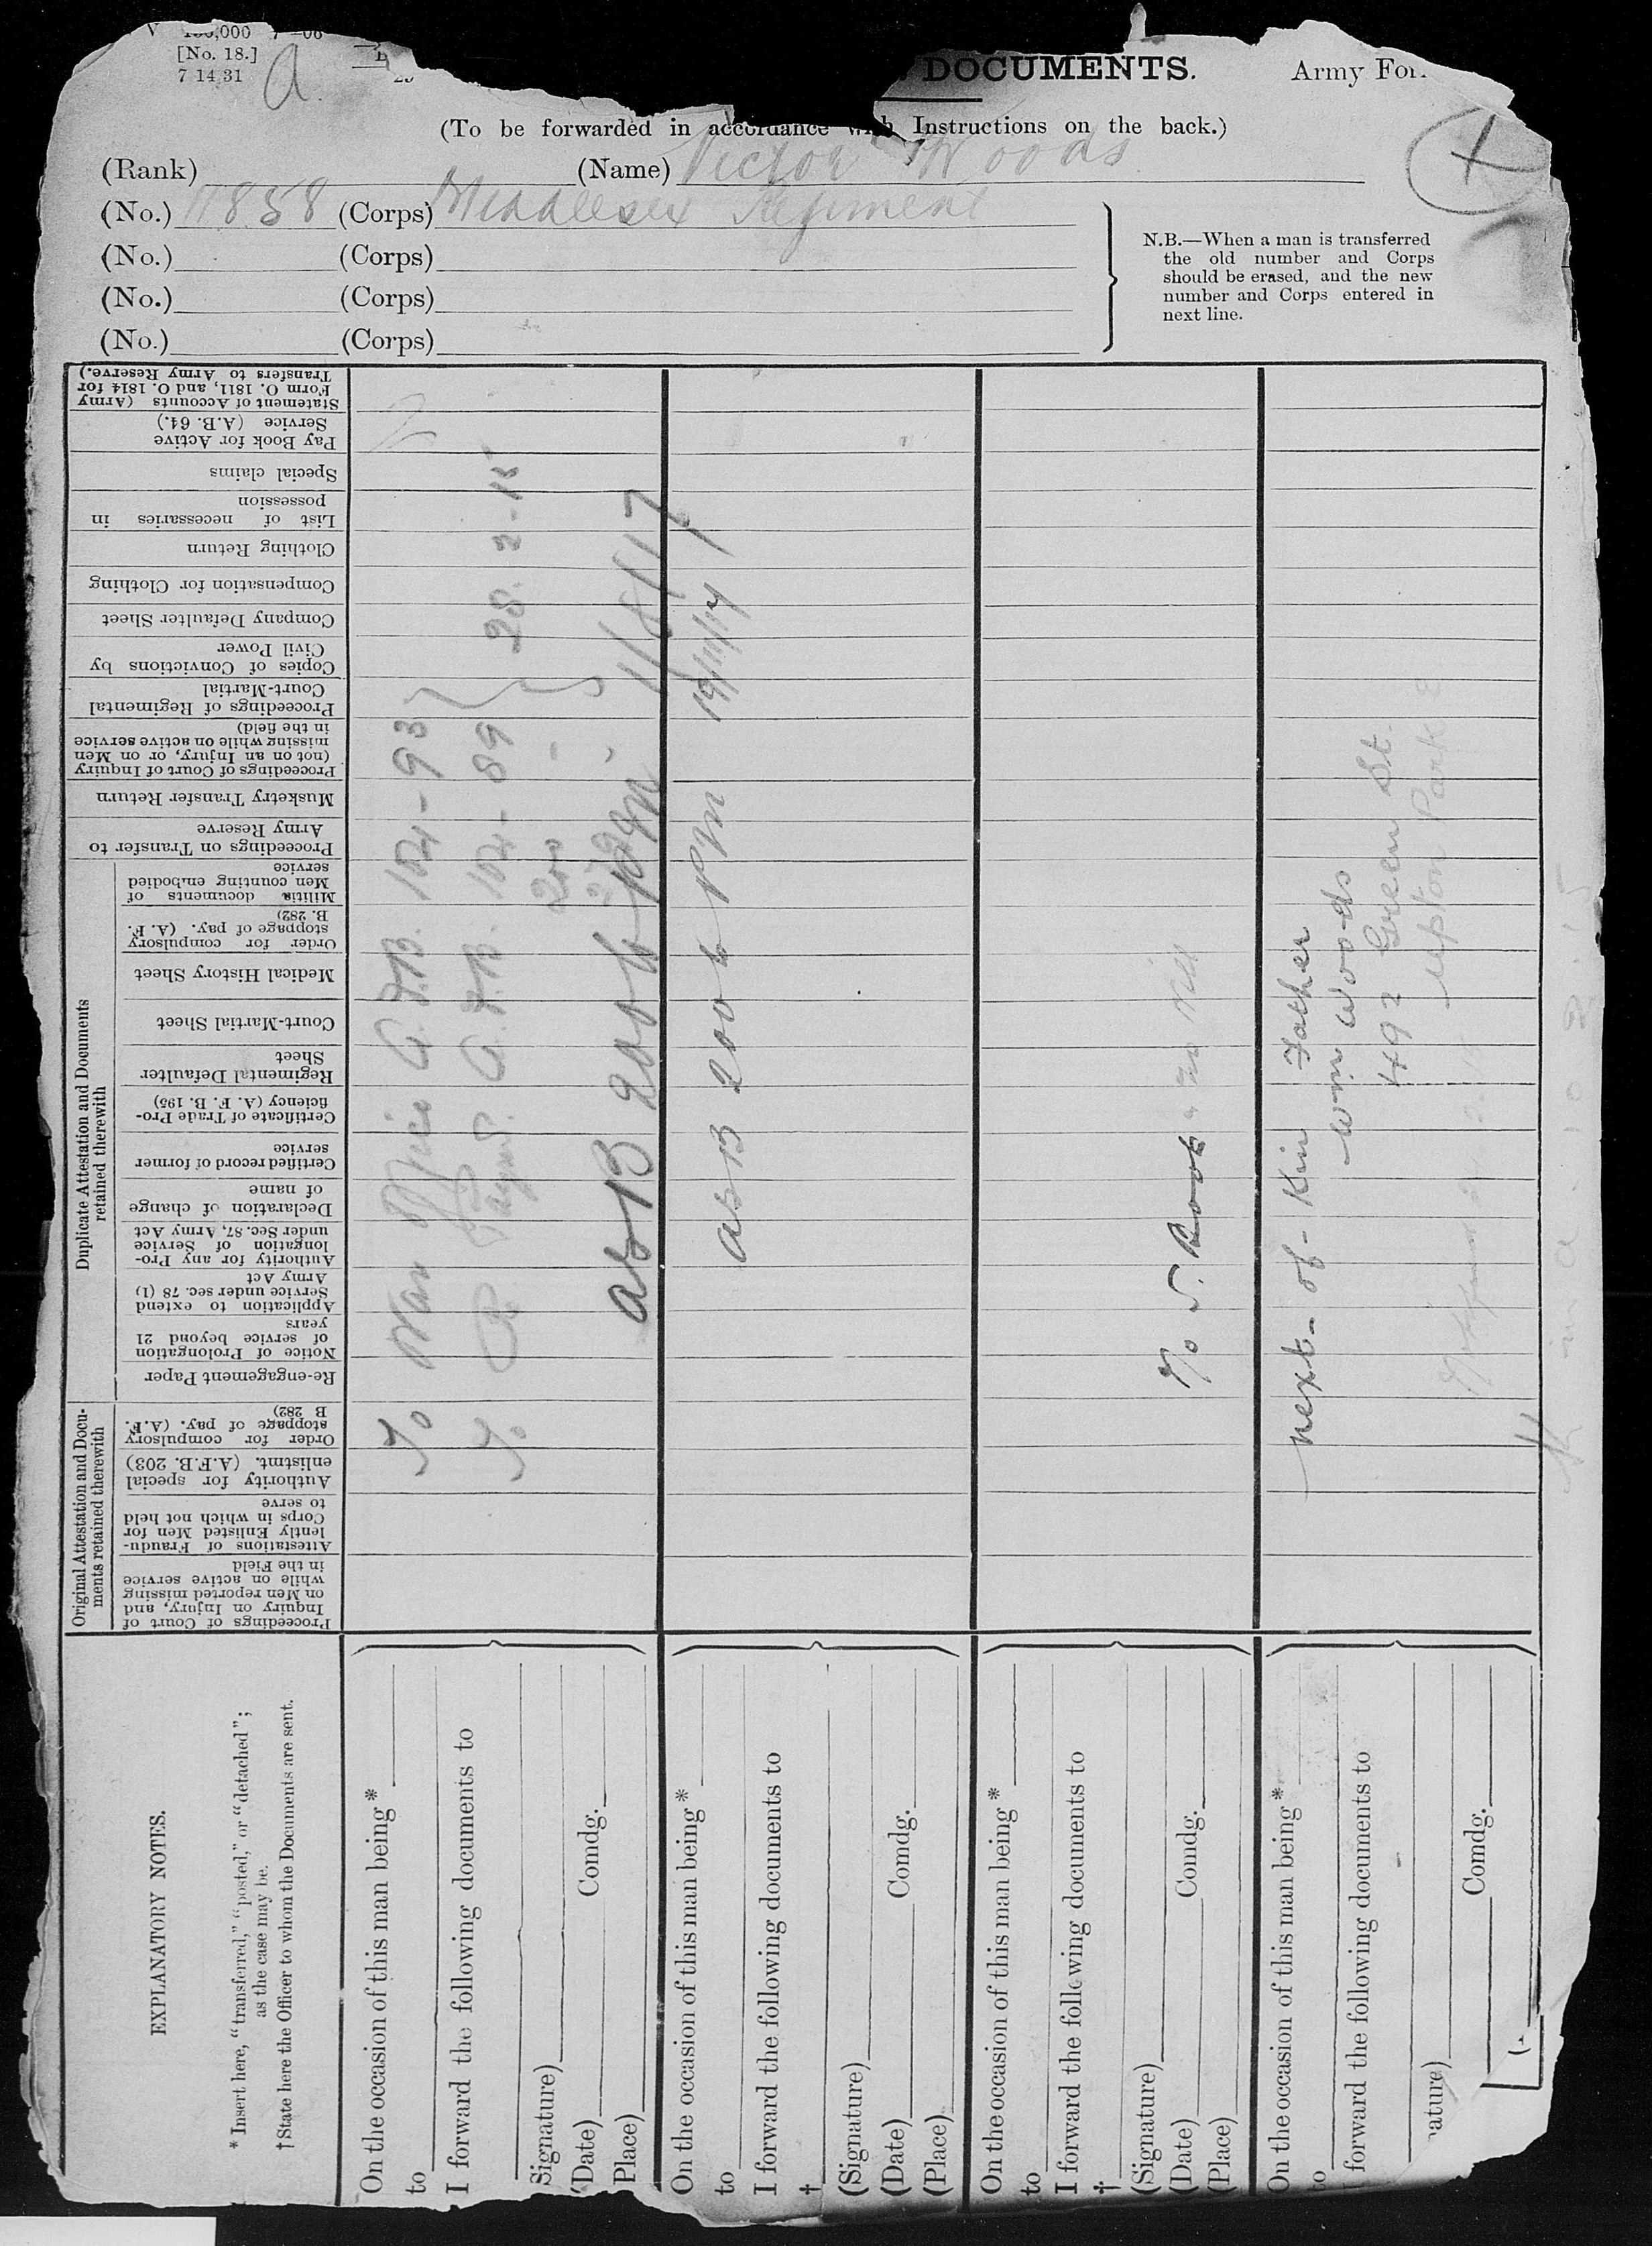 100,000 7—06
[No. 18.]
7 14 31
a
DOCUMENTS.
Army For
(To be forwarded in accordance with Instructions on the back.)
(Rank) (Name) Victor Woods
(No.) 11858 (Corps) Middlesex Regiment
(No.) (Corps)
(No.) (Corps)
(No.) (Corps)
N.B.—When a man is transferred
the old number and Corps
should be erased, and the new
number and Corps entered in
next line.
Statement of Accounts (Army
Form O. 1811, and O. 1814 for
Transfers to Army Reserve.)
Pay Book for Active
Service (A.B. 64.)
Special claims
List of necessaries in
possession
Clothing Return
Compensation for Clothing
Company Defaulter Sheet
Copies of Convictions by
Civil Power
Proceedings of Regimental
Court-Martial
Proceedings of Court of Inquiry
(not on an Injury, or on Men
missing while on active service
in the field)
Musketry Transfer Return
Proceedings on Transfer to
Army Reserve
Duplicate Attestation and Documents
retained therewith
Militia documents of
Men counting embodied
service
Order for compulsory
stoppage of pay. (A. F.
B. 282)
Medical History Sheet
Court-Martial Sheet
Regimental Defaulter
Sheet
Certificate of Trade Pro-
ficiency (A. F. B. 195)
Certified record of former
service
Declaration of change
of name
Authority for any Pro-
longation of Service
under Sec. 87, Army Act
Application to extend
Service under sec. 78 (1)
Army Act
Notice of Prolongation
of service beyond 21
years
Re-engagement Paper
Original Attestation and Docu-
ments retained therewith
Order for compulsory
stoppage of pay. (A.F.
B 282)
Authority for special
enlistmt. (A.F.B. 203)
Attestations of Fraudu-
lently Enlisted Men for
Corps in which not held
to serve
Proceedings of Court of
Inquiry on Injury, and
on Men reported missing
while on active service
in the Field
To War Office A.F.B. 104-93
To A.F.B. 104-89
28. 2-15
2006 1/8/17
as B 2006 19/11/17
To S. Book
next-of-Kin Father
Wm Woods
492 Green St.
Upton Park E
EXPLANATORY NOTES.
* Insert here, "transferred," "posted," or "detached";
as the case may be.
† State here the Officer to whom the Documents are sent.
On the occasion of this man being*
to
I forward the following documents to
Signature)
(Date) Comdg.
Place)
On the occasion of this man being*
to
I forward the following documents to
†
(Signature)
(Date) Comdg.
(Place)
On the occasion of this man being*
to
I forward the following documents to
†
(Signature)
(Date) Comdg.
(Place)
On the occasion of this man being*
to
forward the following documents to
nature)
Comdg.